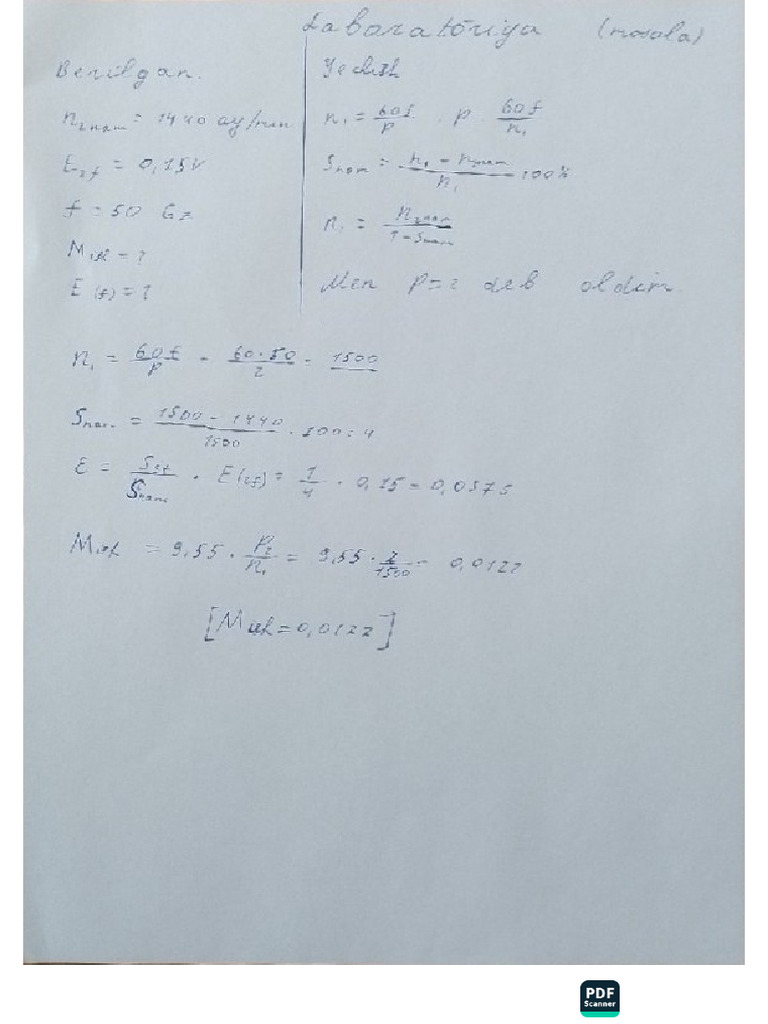 Labaratoriya (masala)
Berilgan.
n₂nom = 1440 ay/min
E₂f = 0,15V
f = 50 Gz
M ish = ?
E(f) = ?
Yechish
n₁ = 60f/p . p . 60f/n₁
Snom = n₁ - n₂nom/n₁ 100%
n₁ = n₂nom/1-Snom
Men p=2 deb oldim.
n₁ = 60f/p = 60·50/2 = 1500
Snom. = 1500 - 1440/1500 · 100 = 4
· E(2f) = 1/4 · 0,15 = 0,0375
= 9,55 · P₂/n₁ = 9,55 · 2/1500 = 0,0127
[M ish = 0,0127]
PDF
Scanner